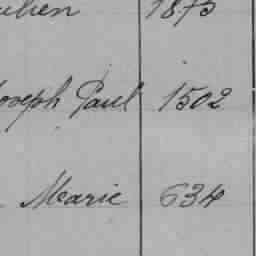 ulien 1873
Joseph Paul 1502
Marie 634